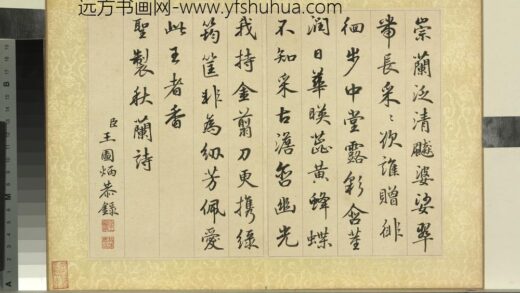 远方书画网-www.yfshuhua.com
崇蘭泛清颸婆娑翠
帶長采采欲誰贈徘
徊步中堂露彩含葉
潤日華暎蕊黃蜂蝶
不知采古澹含幽光
我持金剪刀更攜綠
筠筐非為紉芳佩愛
此王者香
聖製秋蘭詩
臣王圖炳恭錄